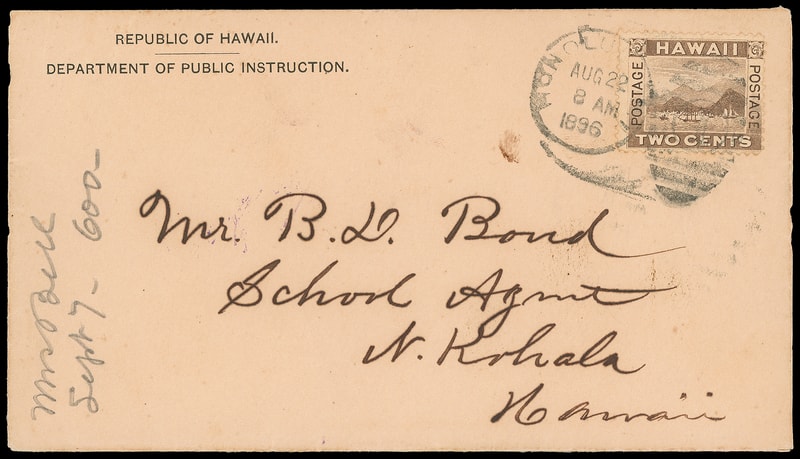 REPUBLIC OF HAWAII.
DEPARTMENT OF PUBLIC INSTRUCTION.
HONOLULU
AUG 22
8 AM
1896
HAWAII
POSTAGE
POSTAGE
TWO CENTS
Mr. B. D. Bond
School Agent
N. Kohala
Hawaii
Miss Bell
Sept 7 - 600